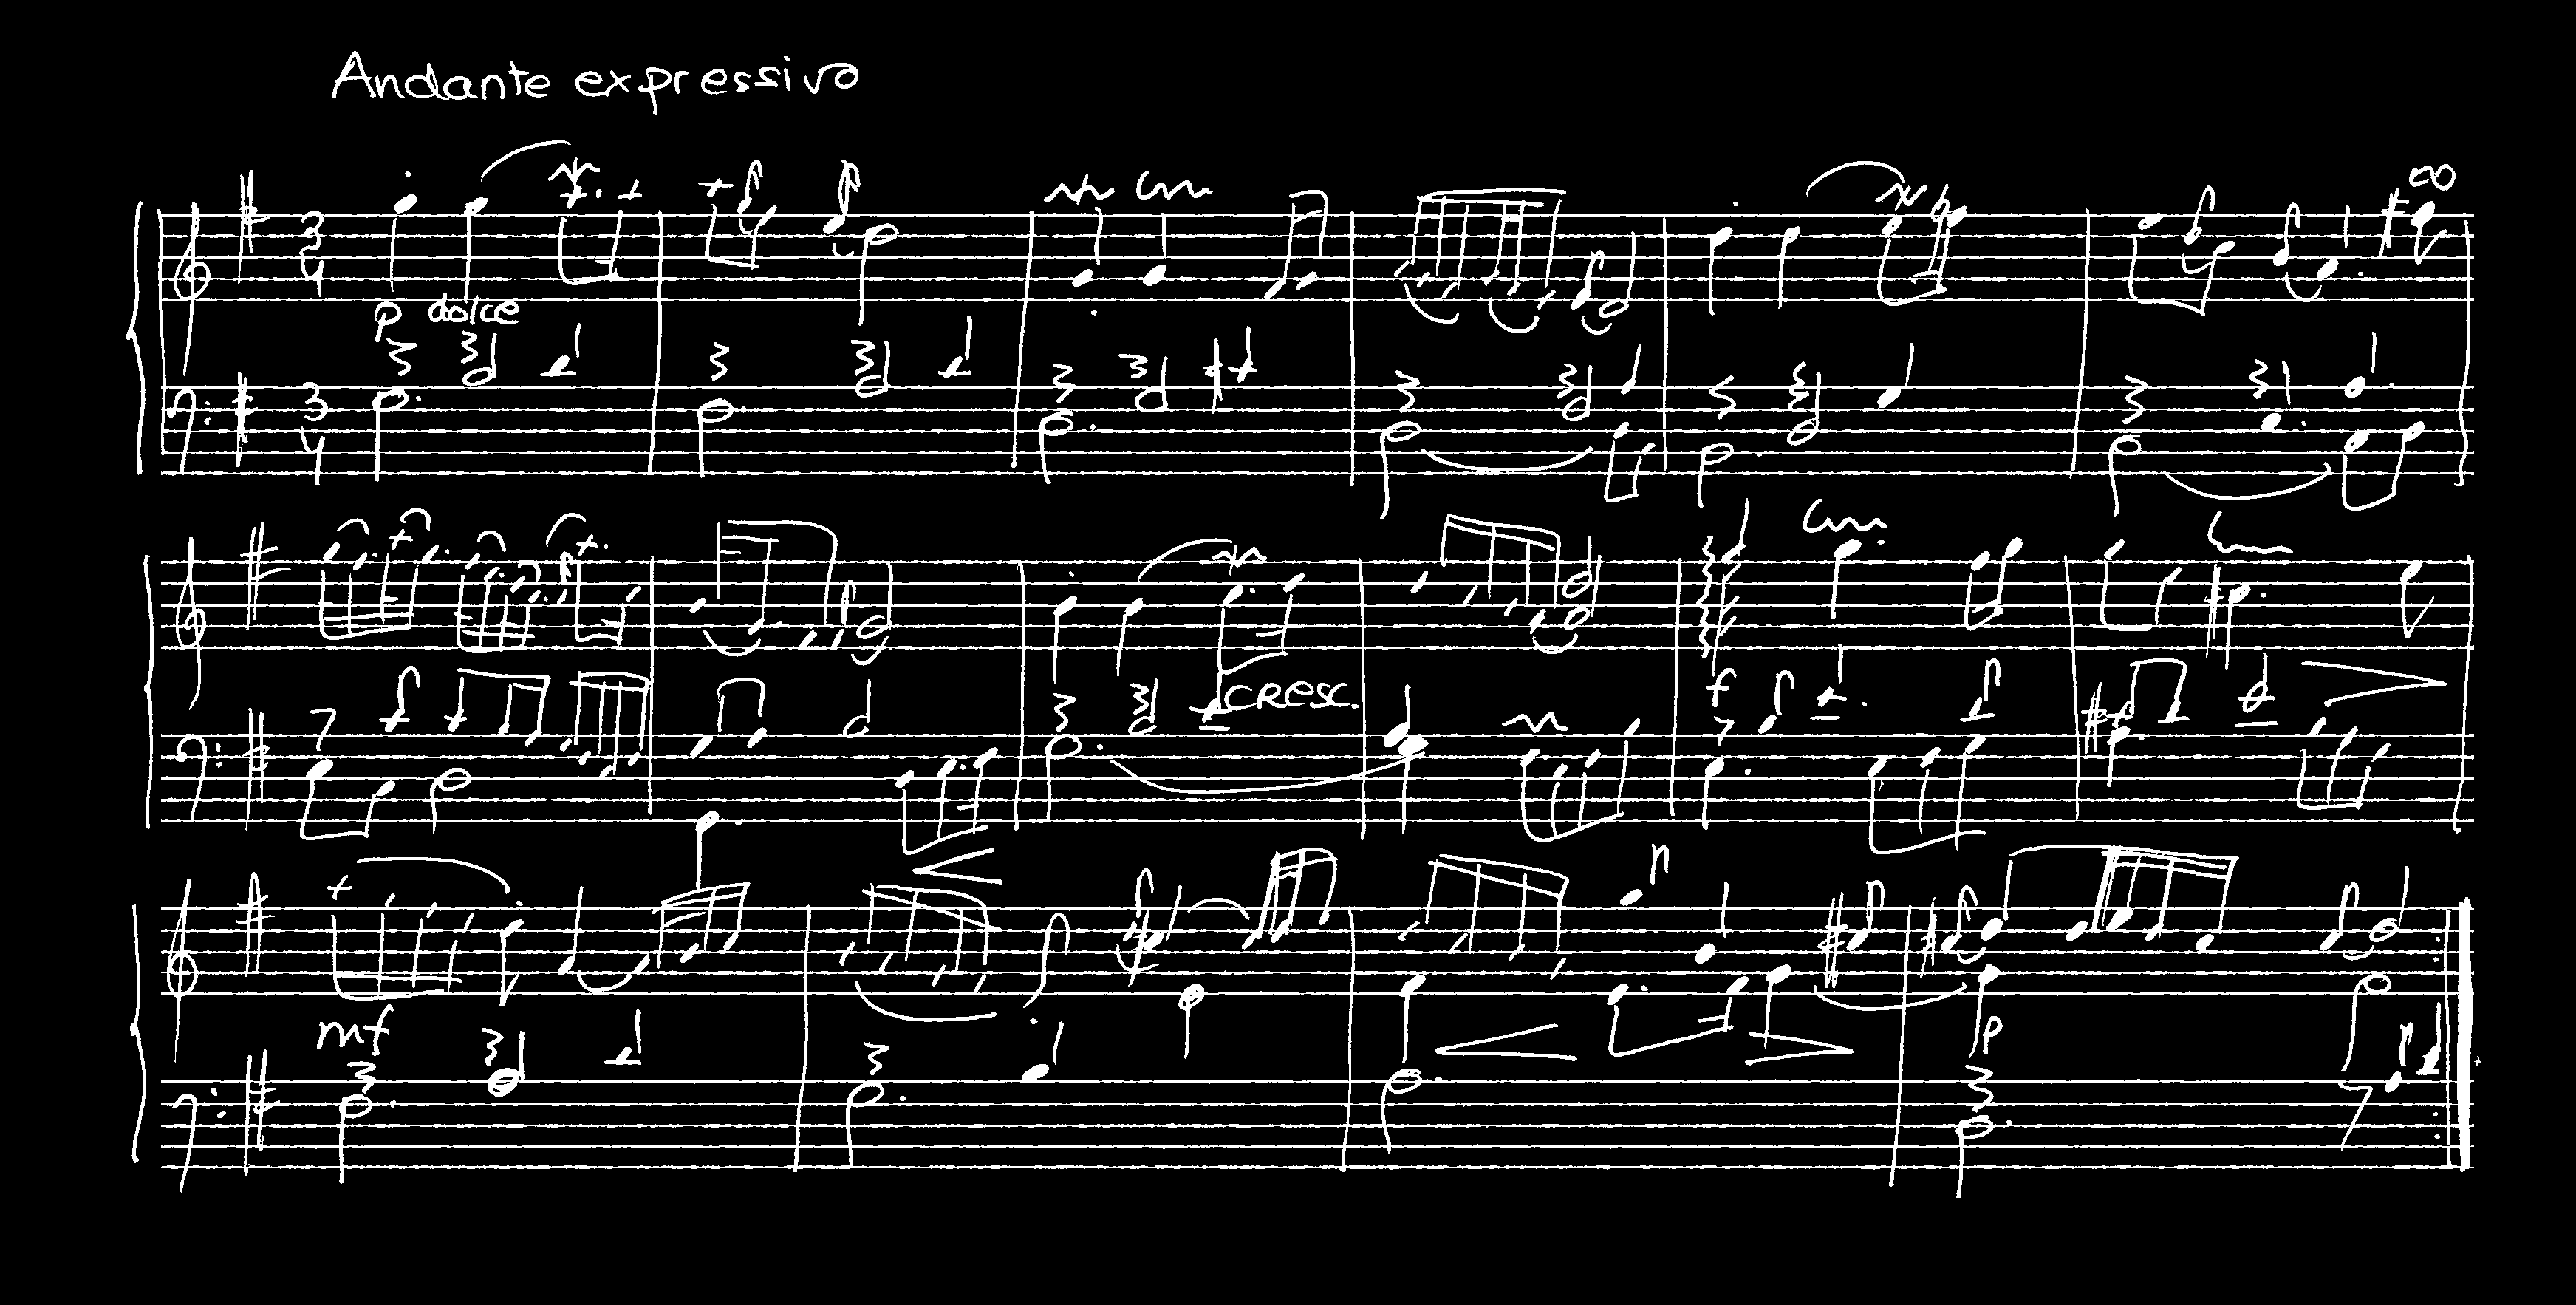 Andante expressivo
p dolce
cresc.
f
mf
p